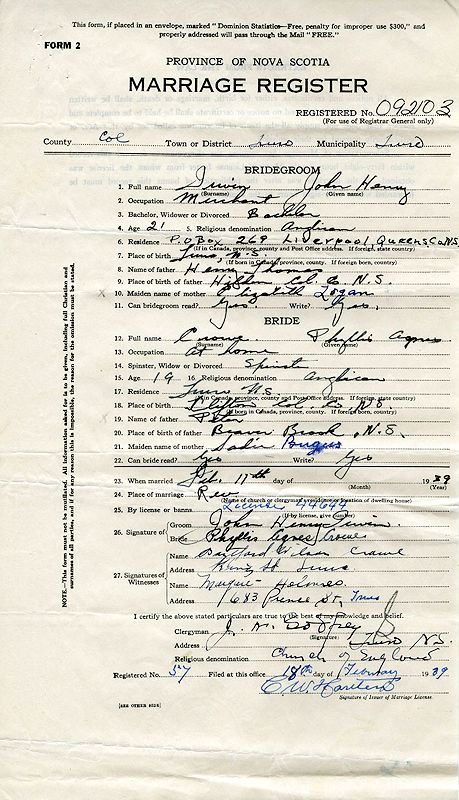 This form, if placed in an envelope, marked "Dominion Statistics—Free, penalty for improper use $300," and
properly addressed will pass through the Mail "FREE."
FORM 2
PROVINCE OF NOVA SCOTIA
MARRIAGE REGISTER
REGISTERED No. 092103
(For use of Registrar General only)
County Col Town or District Truro Municipality Truro
BRIDEGROOM
1. Full name Irwin John Henry
(Surname) (Given name)
2. Occupation Merchant
3. Bachelor, Widower or Divorced Bachelor
4. Age 21 5. Religious denomination Anglican
6. Residence P.O Box 269 Liverpool, Queens Co N.S.
(If in Canada, province, county and Post Office address. If foreign, country)
7. Place of birth Truro, N.S.
(If born in Canada, province, county. If foreign born, country)
8. Name of father Henry Thomas
9. Place of birth of father Hilden Col. Co N.S.
10. Maiden name of mother Elizabeth Logan
11. Can bridegroom read? Yes. Write? Yes.
BRIDE
12. Full name Crowe Phyllis Agnes
(Surname) (Given name)
13. Occupation At home
14. Spinster, Widow or Divorced Spinster
15. Age 19 16. Religious denomination Anglican
17. Residence Truro N.S.
(If in Canada, province, county and Post Office address. If foreign, country)
18. Place of birth Col. Co., N.S.
(If born in Canada, province, county. If foreign, country)
19. Name of father
20. Place of birth of father Beaver Brook, N.S.
21. Maiden name of mother Sadie
22. Can bride read? Yes Write? Yes
23. When married Feb. 11th day of 1939
(Month) (Year)
24. Place of marriage Rev
(Name of church or clergyman's residence or location of dwelling home)
25. By license or banns License 44644
(If by license, give number)
26. Signature of Groom John Henry Irwin.
Bride Phyllis Agnes Crowe
27. Signatures of Witnesses
Name Wilson Crowe
Address King St. Truro
Name Holmes.
Address 683 Prince St, Truro
I certify the above stated particulars are true to the best of my knowledge and belief.
Clergyman J. W. Godfrey
(Signature)
Address Truro N.S.
Religious denomination Church of England
Registered No. 57 Filed at this office 18th day of February 1939.
Signature of Issuer of Marriage License.
[SEE OTHER SIDE]
NOTE.—This form must not be mutilated. All information asked for is to be given, including full Christian and
surnames of all parties, and if for any reason this is impossible, the reason for the omission must be stated.